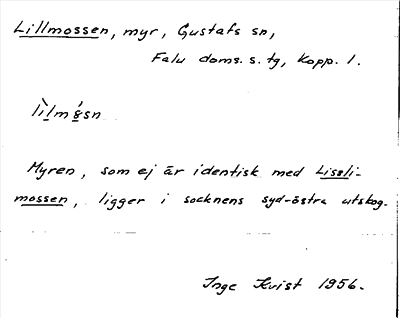 Lillmossen, myr, Gustafs sn,
Falu doms. s. tg, Kopp. l.
lìlmósn
Myren, som ej är identisk med Lissli-
mossen, ligger i socknens syd-östra utskog.
Inge Kvist 1956.